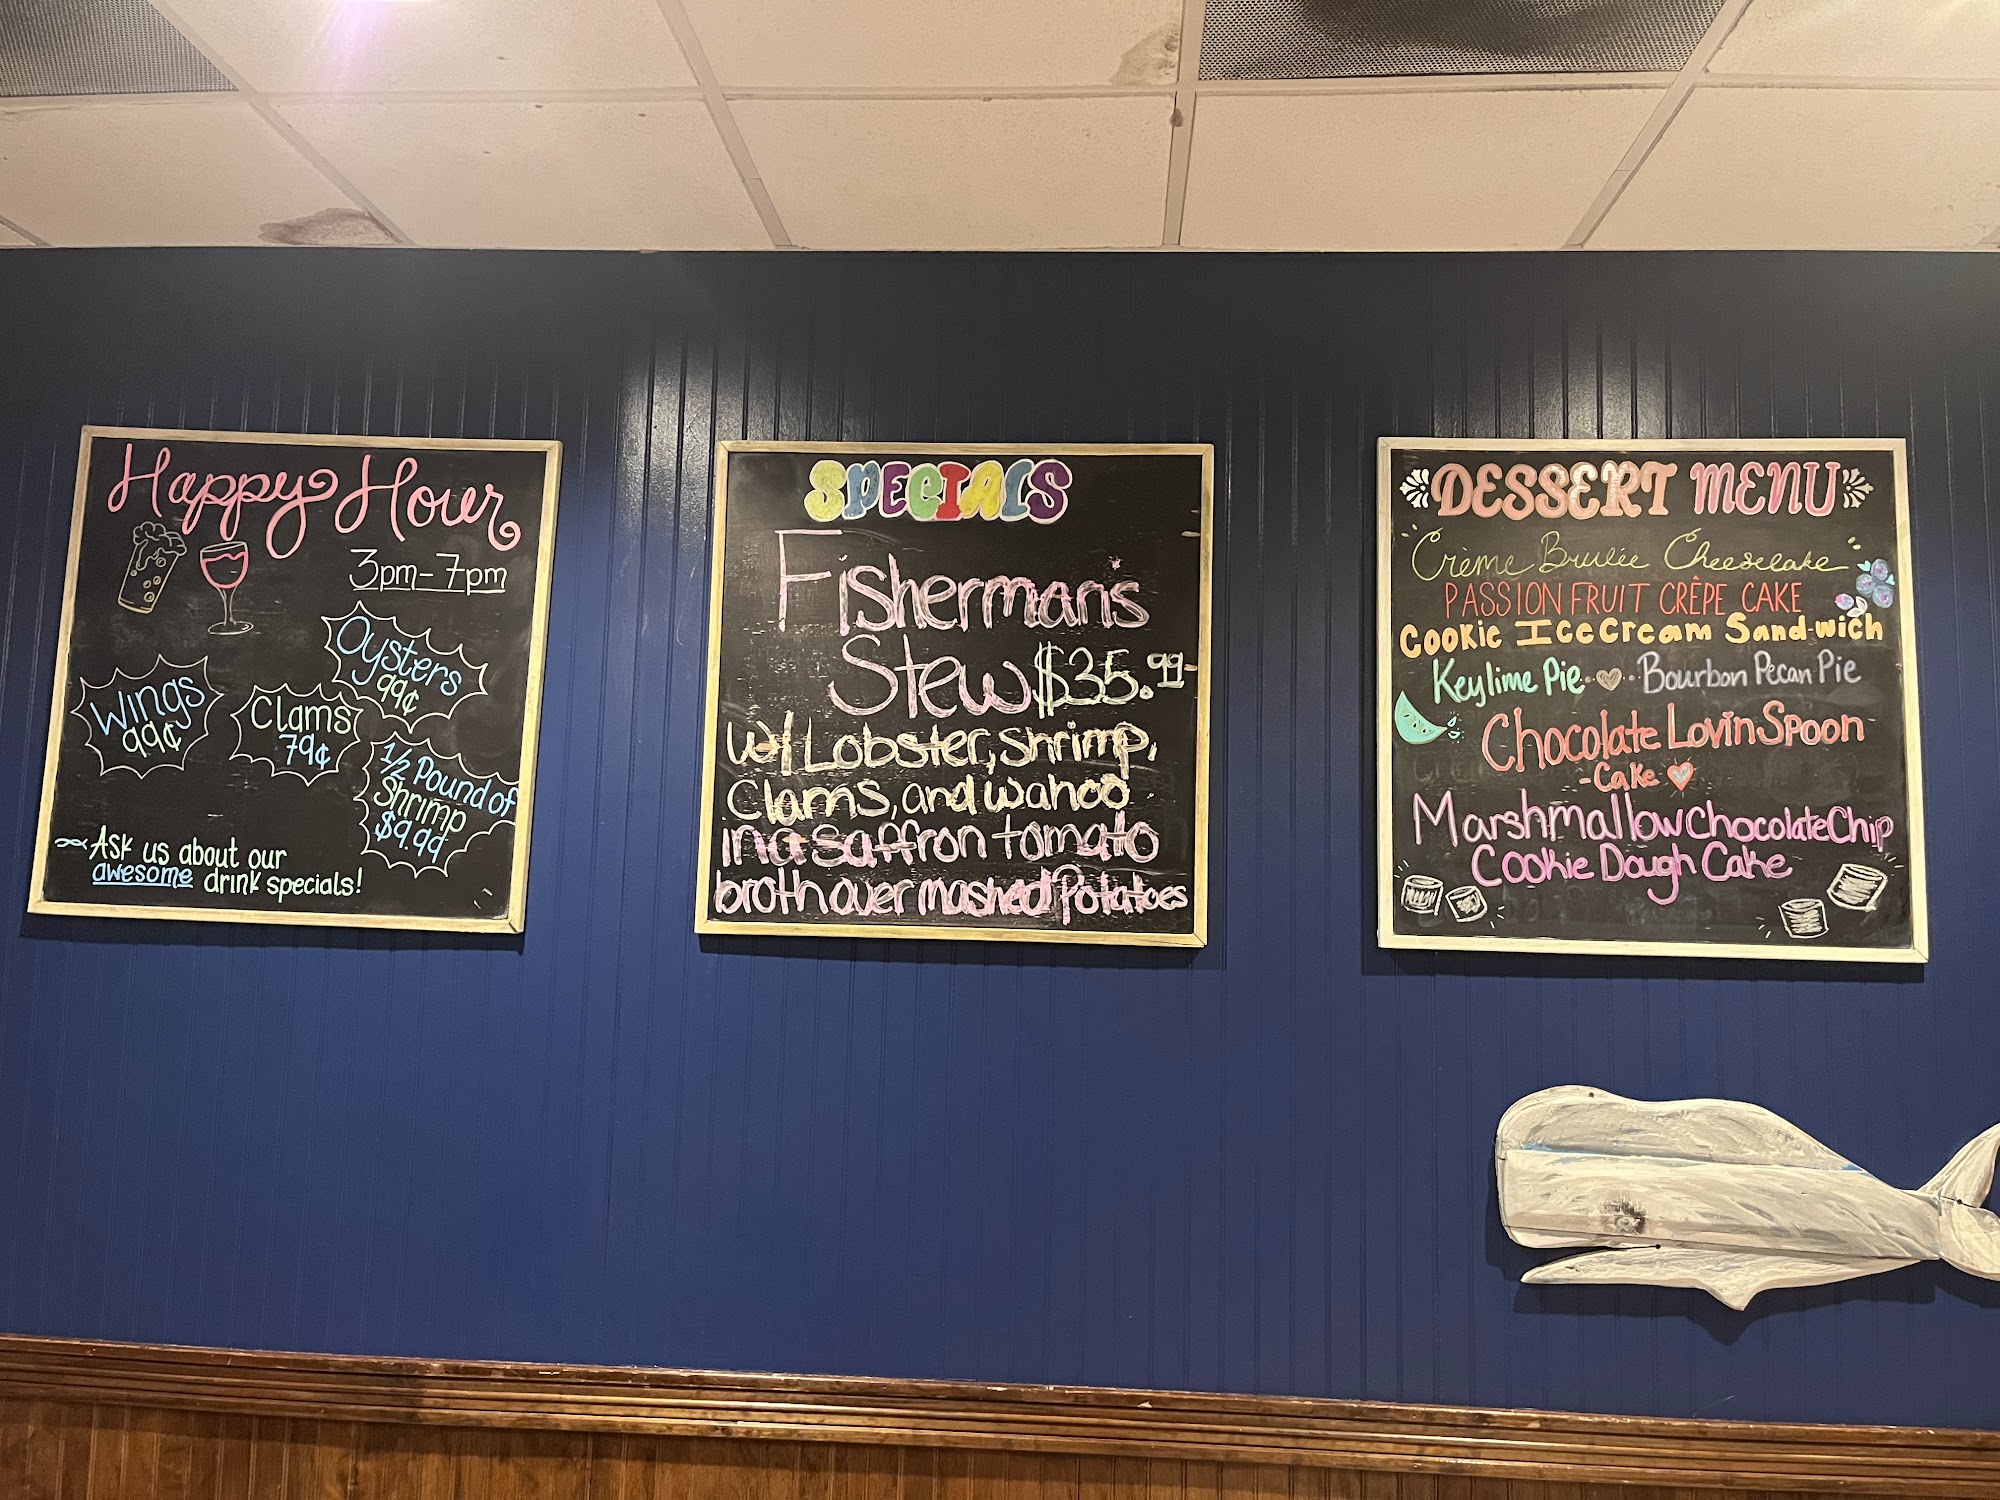 Happy Hour
3pm-7pm
Oysters
99¢
Wings
99¢
Clams
79¢
1/2 Pound of
Shrimp
$9.99
Ask us about our
awesome drink specials!
SPECIALS
Fisherman's
Stew $35.99
w/ Lobster, shrimp,
Clams, and wahoo
in a saffron tomato
broth over mashed Potatoes
DESSERT MENU
Crème Brulée Cheesecake
PASSION FRUIT CRÊPE CAKE
Cookie Ice Cream Sand-wich
Keylime Pie Bourbon Pecan Pie
Chocolate Lovin Spoon
-Cake
Marshmallow Chocolate Chip
Cookie Dough Cake